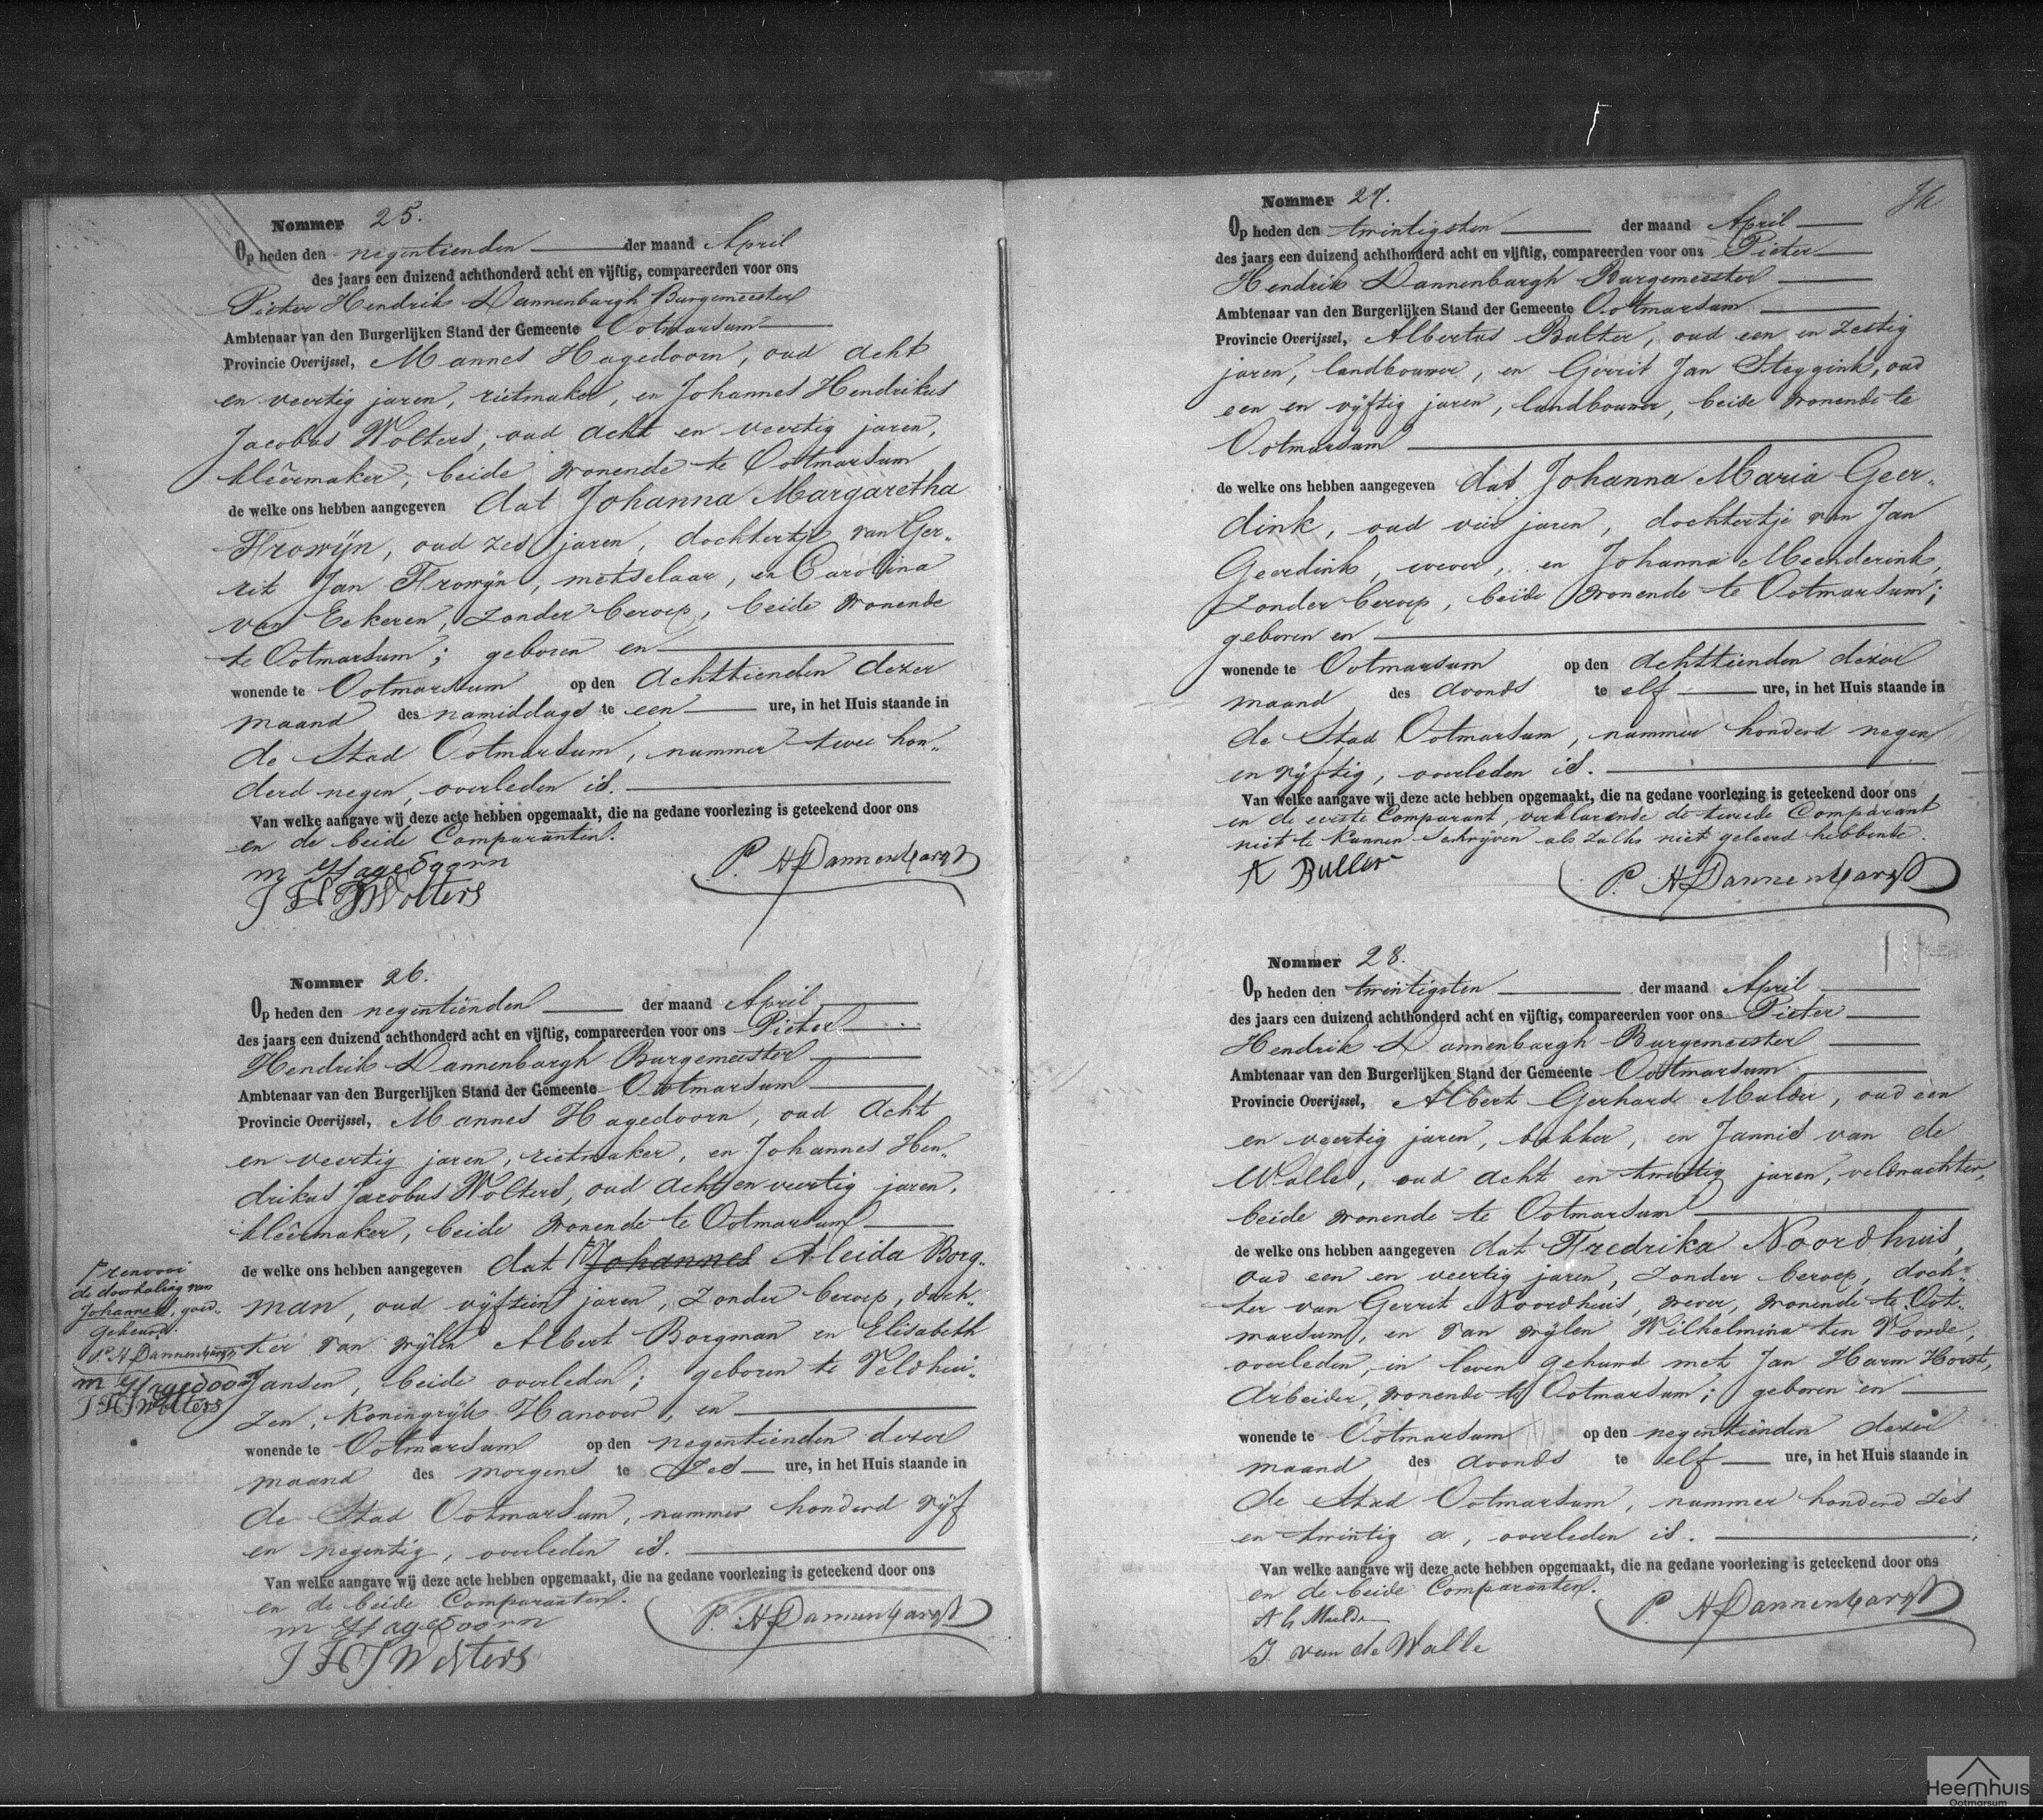 Nommer 25.
Op heden den negentienden der maand April
des jaars een duizend achthonderd acht en vijftig, compareerden voor ons
Pieter Hendrik Dannenbargh Burgemeester
Ambtenaar van den Burgerlijken Stand der Gemeente Ootmarsum
Provincie Overijssel, Mannes Hagedoorn, oud acht
en veertig jaren, rietmaker, en Johannes Hendrikus
Jacobus Wolters, oud acht en veertig jaren,
kleêrmaker, beide wonende te Ootmarsum
de welke ons hebben aangegeven dat Johanna Margaretha
Frowijn, oud zes jaren, dochtertje van Ger-
rit Jan Frowijn, metselaar, en Carolina
van Eekeren, zonder beroep, beide wonende
te Ootmarsum; geboren en
wonende te Ootmarsum op den achttienden dezer
maand des namiddags te een ure, in het Huis staande in
de Stad Ootmarsum, nummer twee hon-
derd negen, overleden is.
Van welke aangave wij deze acte hebben opgemaakt, die na gedane voorlezing is geteekend door ons
en de beide Comparanten.
m Hagedoorn
P. H Dannenbargh
J H J Wolters
Nommer 26.
Op heden den negentienden der maand April
des jaars een duizend achthonderd acht en vijftig, compareerden voor ons Pieter
Hendrik Dannenbargh Burgemeester
Ambtenaar van den Burgerlijken Stand der Gemeente Ootmarsum
Provincie Overijssel, Mannes Hagedoorn, oud acht
en veertig jaren, rietmaker, en Johannes Hen-
drikus Jacobus Wolters, oud acht en veertig jaren,
kleêrmaker, beide wonende te Ootmarsum
de welke ons hebben aangegeven dat Johannes Aleida Borg-
man, oud vijftien jaren, zonder beroep, doch-
ter van wijlen Albert Borgman en Elisabeth
Jansen, beide overleden; geboren te Veldhui-
zen, Koningrijk Hanover, en
wonende te Ootmarsum op den negentienden dezer
maand des morgens te zes ure, in het Huis staande in
de Stad Ootmarsum, nummer honderd vijf
en negentig, overleden is.
Van welke aangave wij deze acte hebben opgemaakt, die na gedane voorlezing is geteekend door ons
en de beide Comparanten.
m Hagedoorn
P. H Dannenbargh
J H J Wolters
de doorhaling van
Johannes, goed-
gekeurd.
P. H Dannenbargh
m Hagedoorn
J H J Wolters
Nommer 27.
Op heden den twintigsten der maand April
des jaars een duizend achthonderd acht en vijftig, compareerden voor ons Pieter
Hendrik Dannenbargh Burgemeester
Ambtenaar van den Burgerlijken Stand der Gemeente Ootmarsum
Provincie Overijssel, Albertus Bulter, oud een en zestig
jaren, landbouwer, en Gerrit Jan Steggink, oud
een en vijftig jaren, landbouwer, beide wonende te
Ootmarsum
de welke ons hebben aangegeven dat Johanna Maria Geer-
dink, oud vier jaren, dochtertje van Jan
Geerdink, wever, en Johanna Meenderink,
zonder beroep, beide wonende te Ootmarsum;
geboren en
wonende te Ootmarsum op den achttienden dezer
maand des avonds te elf ure, in het Huis staande in
de Stad Ootmarsum, nummer honderd negen
en vijftig, overleden is.
Van welke aangave wij deze acte hebben opgemaakt, die na gedane voorlezing is geteekend door ons
en de eerste Comparant, verklarende de tweede Comparant
niet te kunnen schrijven als zulks niet geleerd hebbende.
A Buller
P. H Dannenbargh
Nommer 28.
Op heden den twintigsten der maand April
des jaars een duizend achthonderd acht en vijftig, compareerden voor ons Pieter
Hendrik Dannenbargh Burgemeester
Ambtenaar van den Burgerlijken Stand der Gemeente Ootmarsum
Provincie Overijssel, Albert Gerhard Mulder, oud een
en veertig jaren, bakker, en Jannis van de
Walle, oud acht en twintig jaren, veldwachter,
beide wonende te Ootmarsum
de welke ons hebben aangegeven dat Fredrika Noordhuis,
oud een en veertig jaren, zonder beroep, doch-
ter van Gerrit Noordhuis, wever, wonende te Oot-
marsum, en van wijlen Wilhelmina ten Voorde,
overleden, in leven gehuwd met Jan Harm Horst,
arbeider, wonende te Ootmarsum; geboren en
wonende te Ootmarsum op den negentienden dezer
maand des avonds te elf ure, in het Huis staande in
de Stad Ootmarsum, nummer honderd zes
en twintig a, overleden is.
Van welke aangave wij deze acte hebben opgemaakt, die na gedane voorlezing is geteekend door ons
en de beide Comparanten.
A G Mulder
P. H Dannenbargh
J. van de Walle
Heemhuis
Ootmarsum